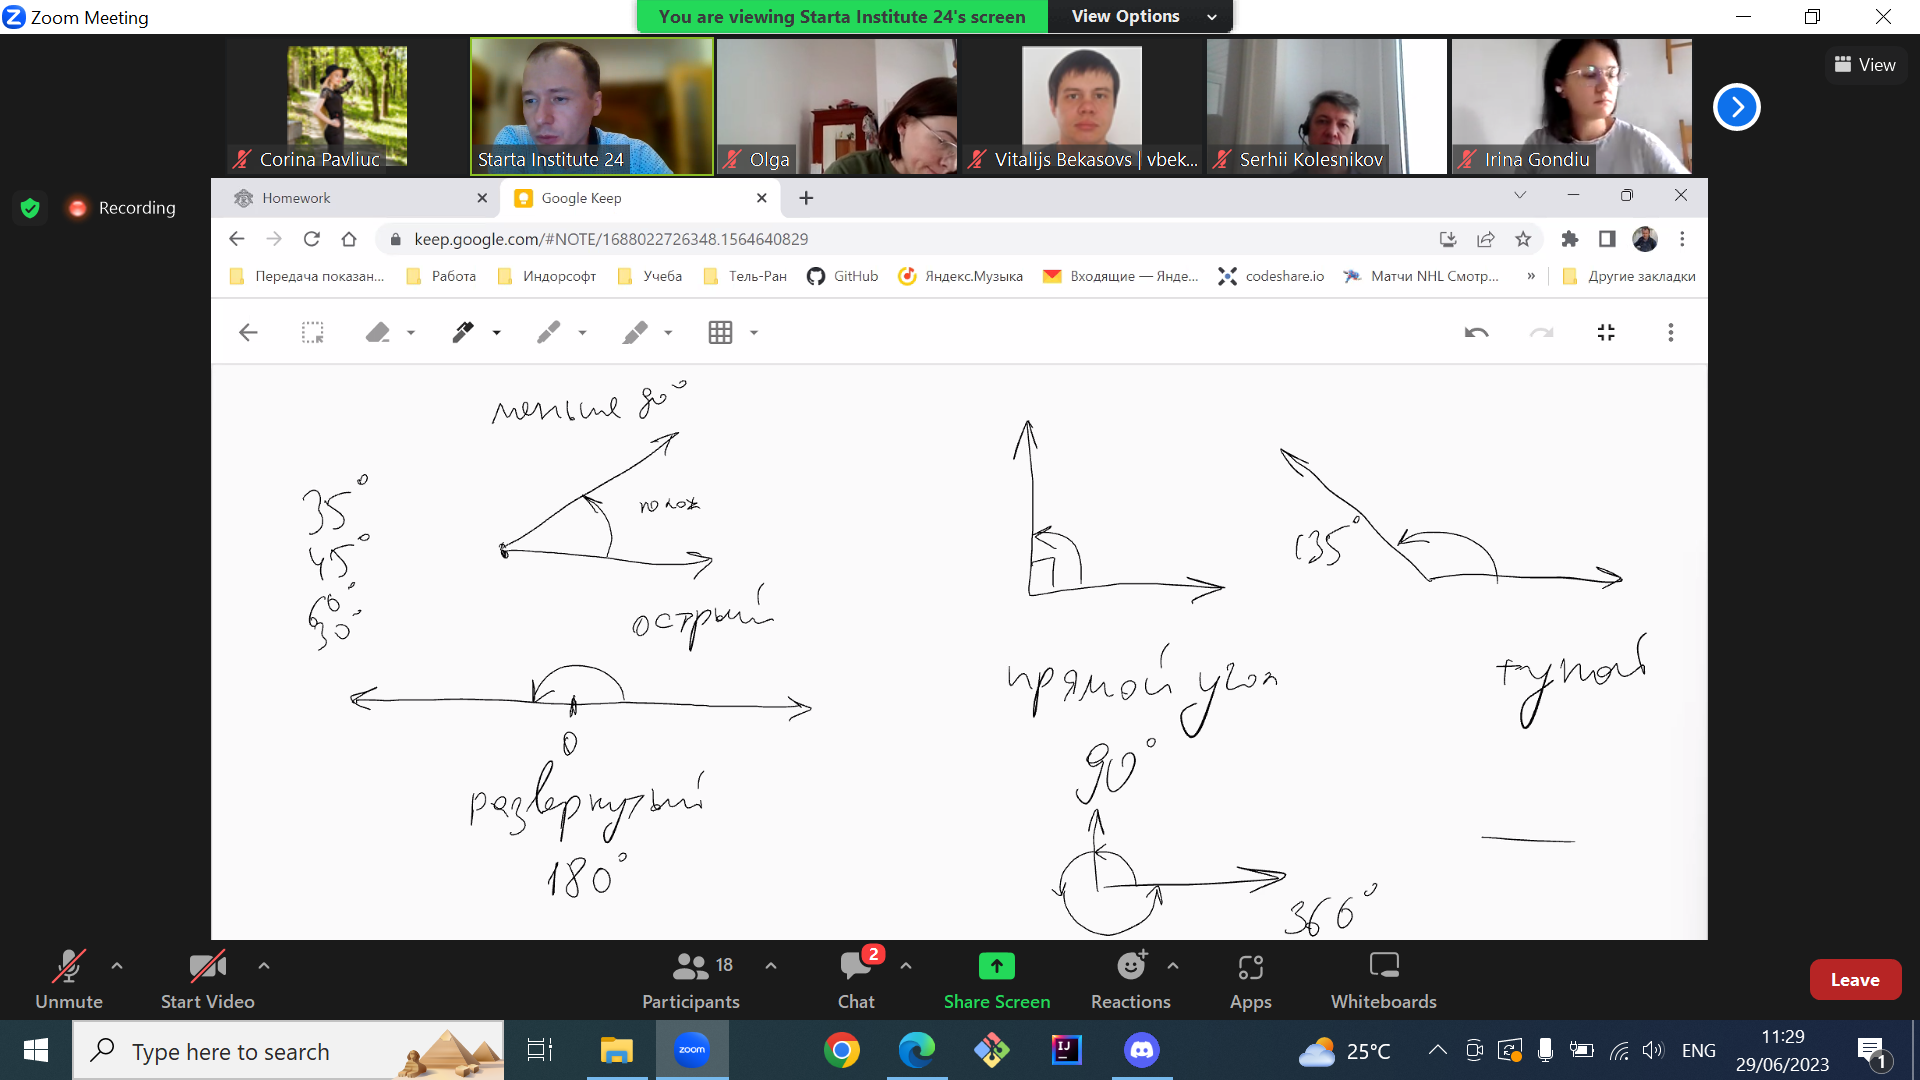 Zoom Meeting
You are viewing Starta Institute 24's screen
View Options
View
Corina Pavliuc
Starta Institute 24
Olga
Vitalijs Bekasovs | vbek...
Serhii Kolesnikov
Irina Gondiu
Recording
Homework
Google Keep
keep.google.com/#NOTE/1688022726348.1564640829
Передача показан...
Работа
Индорсофт
Учеба
Тель-Ран
GitHub
Яндекс.Музыка
Входящие — Янде...
codeshare.io
Матчи NHL Смотр...
»
Другие закладки
меньше 90°
35°
45°
60°
30°
полож
острый
135°
прямой угол
90°
тупой
0
развернутый
180°
360°
Unmute
Start Video
Participants
18
Chat
2
Share Screen
Reactions
Apps
Whiteboards
Leave
Type here to search
zoom
IJ
25°C
ENG
11:29
29/06/2023
1